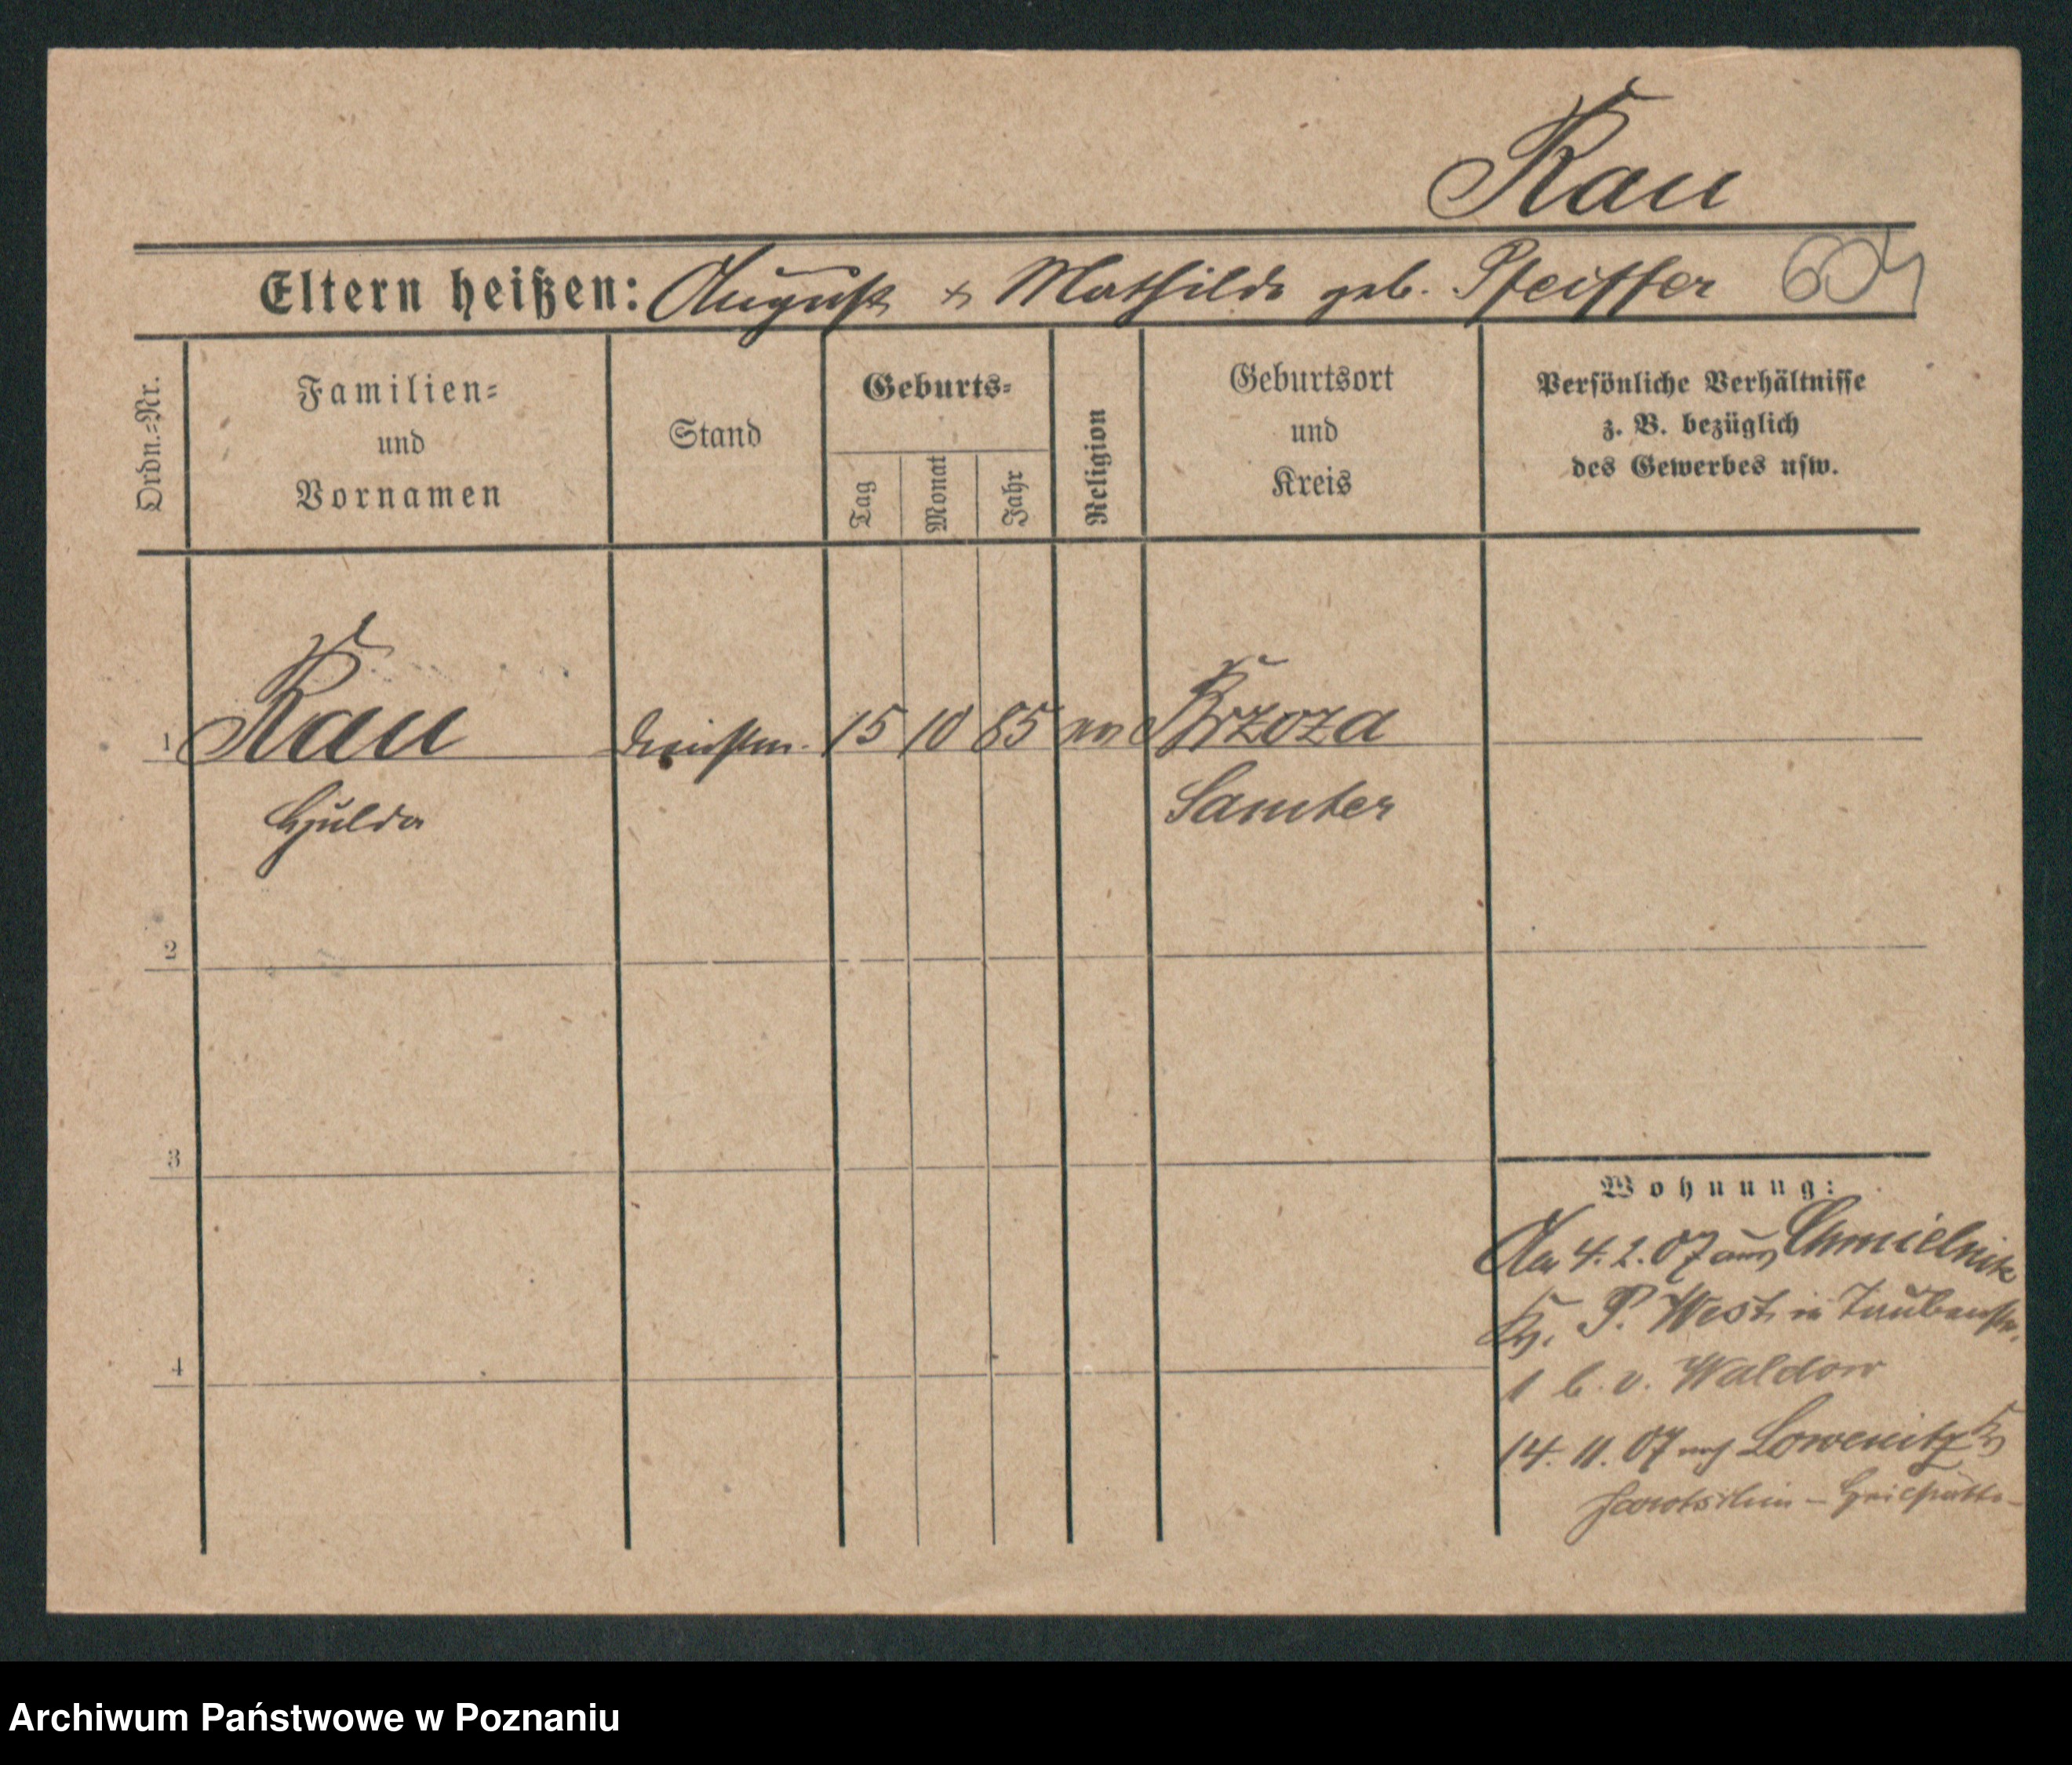 Rau
Eltern heißen: August & Mathilde geb. Pfeiffer 604
Ordn.=Nr.
Familien=
und
Vornamen
Stand
Geburts=
Tag
Monat
Jahr
Religion
Geburtsort
und
Kreis
Persönliche Verhältnisse
z. B. bezüglich
des Gewerbes usw.
1 Rau 15 10 85 Brzoza
Hulda Samter
2
3
4
Wohnung:
4. 2. 07 aus Chmielnik
P. West in Taubenstr.
1 b. v. Waldow
14. 11. 07 nach Lowenitz
Jarotschin
Archiwum Państwowe w Poznaniu